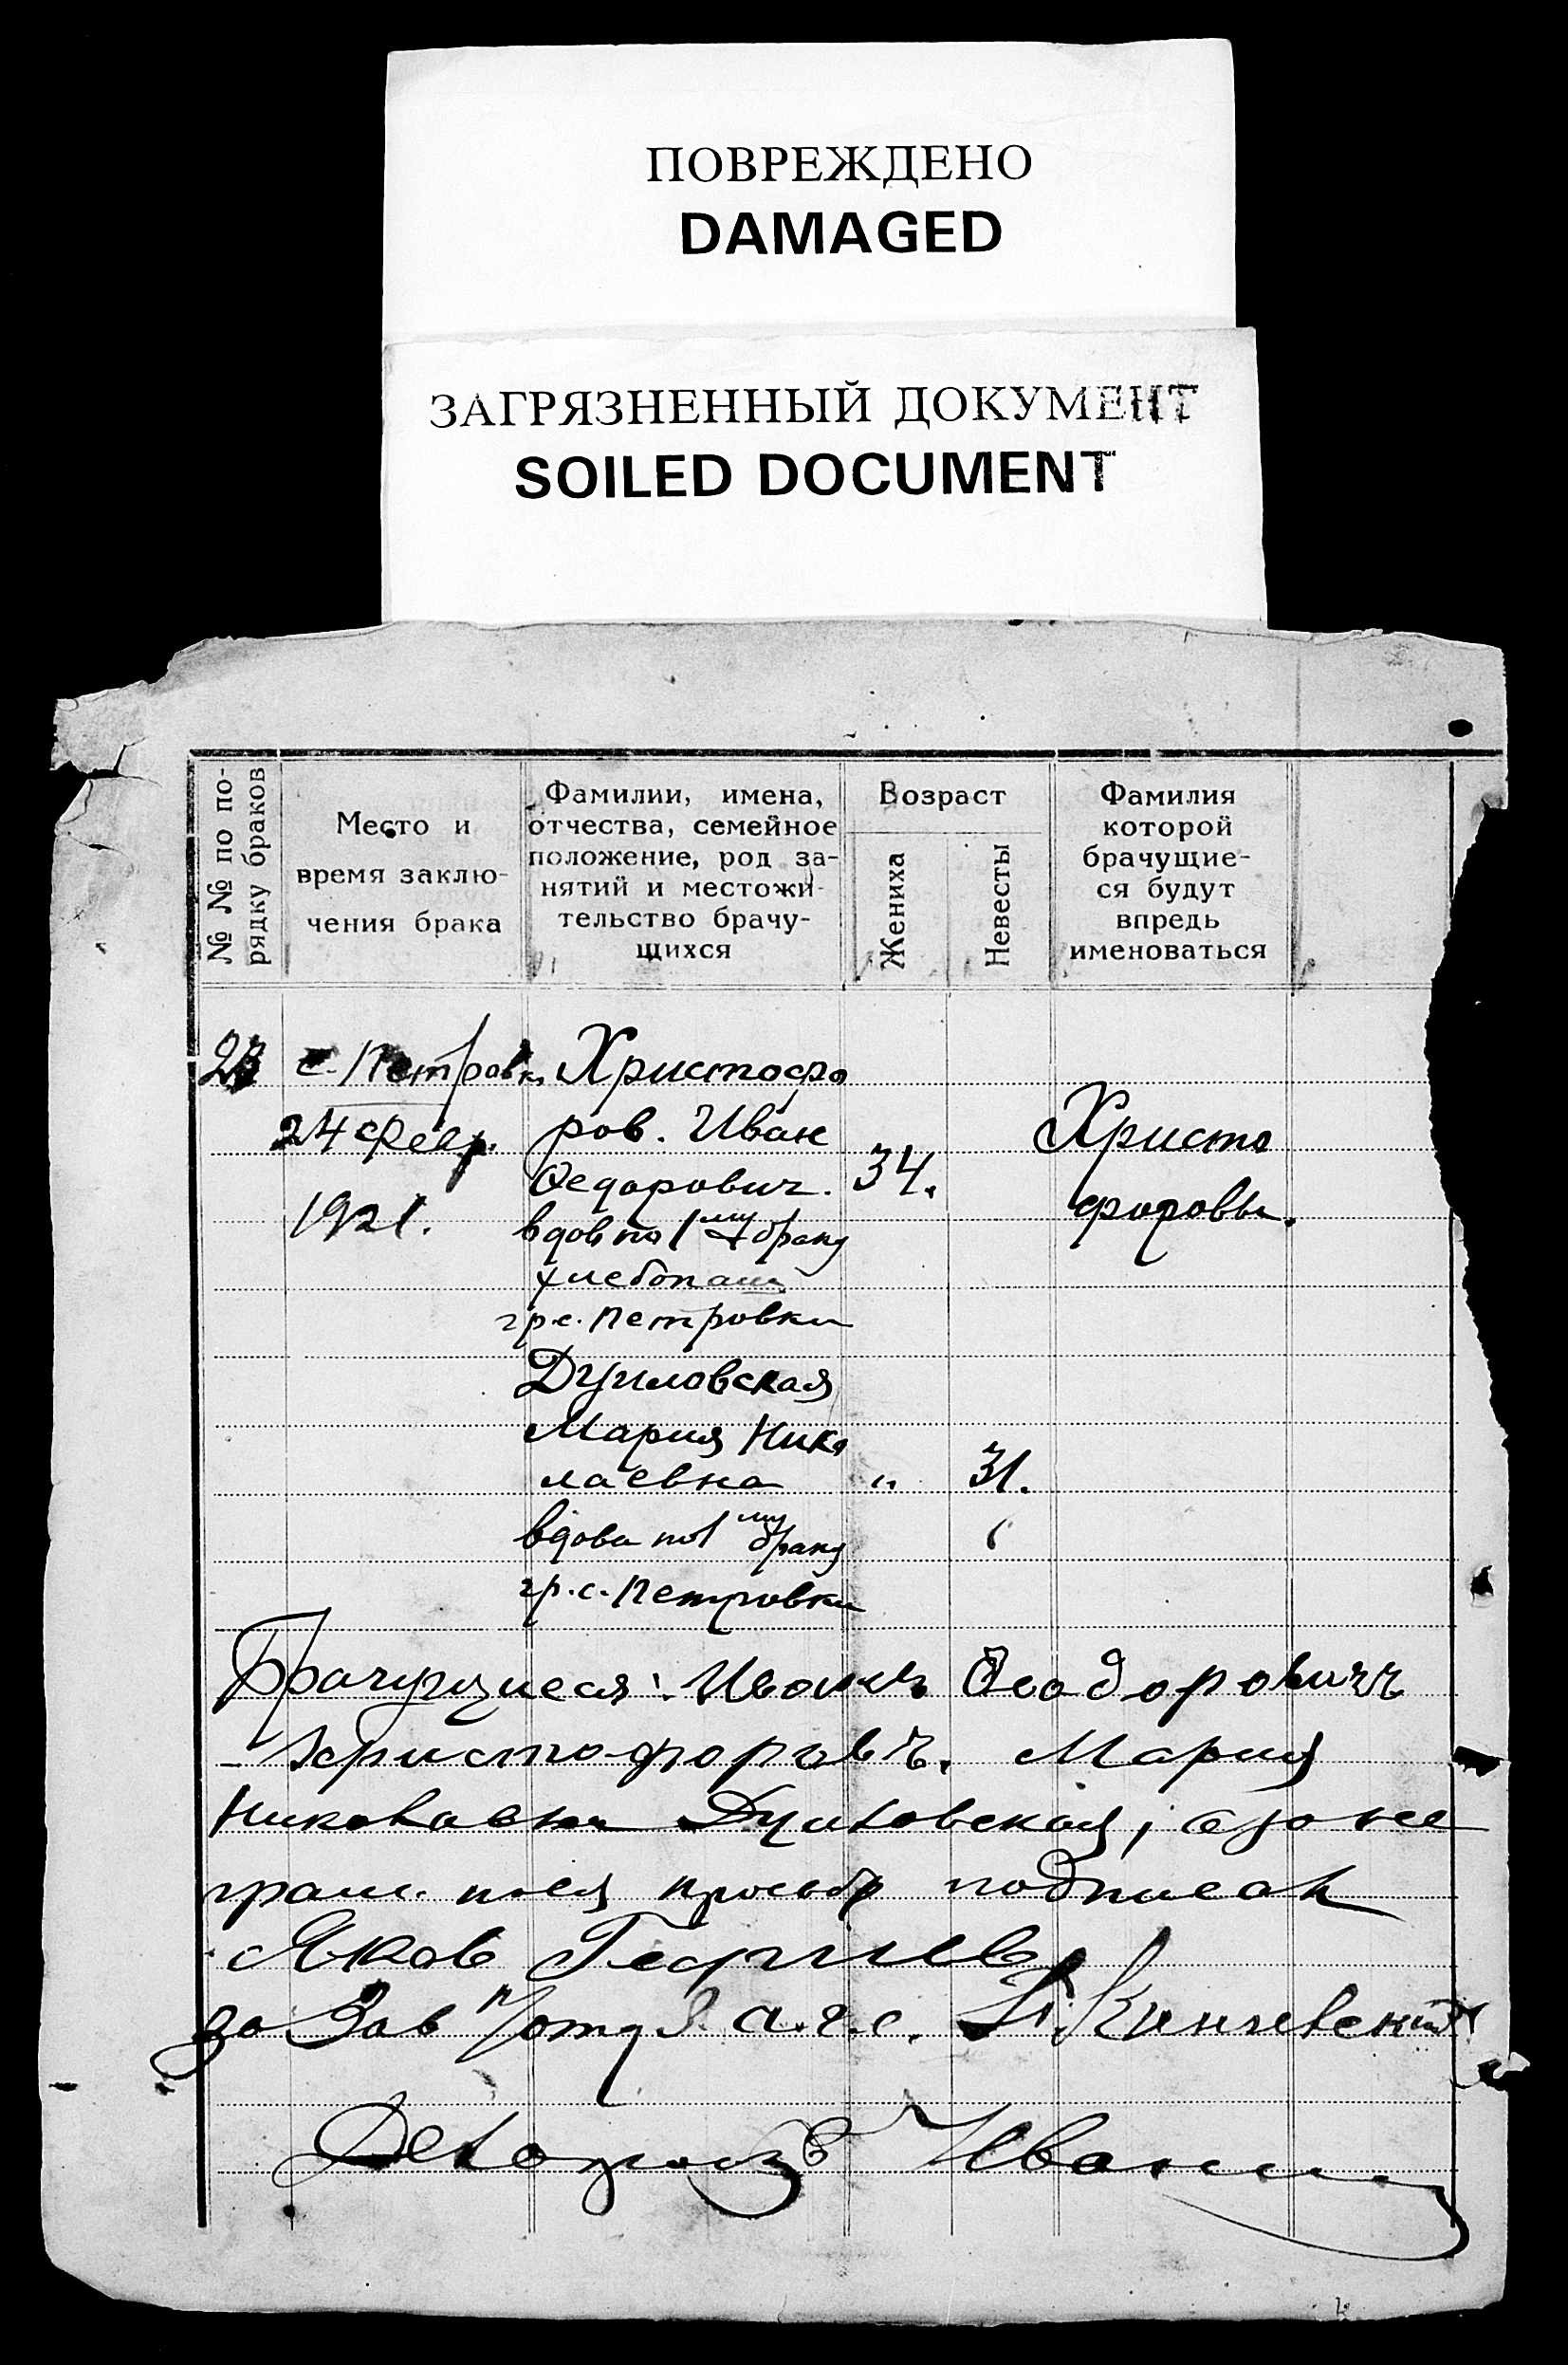 ПОВРЕЖДЕНО
DAMAGED
ЗАГРЯЗНЕННЫЙ ДОКУМЕНТ
SOILED DOCUMENT
№ № по по-
рядку браков
Место и
время заклю-
чения брака
Фамилии, имена,
отчества, семейное
положение, род за-
нятий и местожи-
тельство брачу-
щихся
Возраст
Жениха
Невесты
Фамилия
которой
брачущие-
ся будут
впредь
именоваться
с. Петровка
24 Февр.
1921.
Христофо
ров. Иван
Федорович.
вдов по 1му браку
хлебопаш
гр. с. Петровки
34.
Христо
форовы.
Мария Нико
лаевна
" 31.
вдова по 1му браку
гр. с. Петровки
Брачущиеся: Иванъ Феодоровичъ
Христофоровъ. Мария
Николаевна
грам. по ея просьбе подписал
Яков
за Зав п/отд З. а. г. с.
Иван